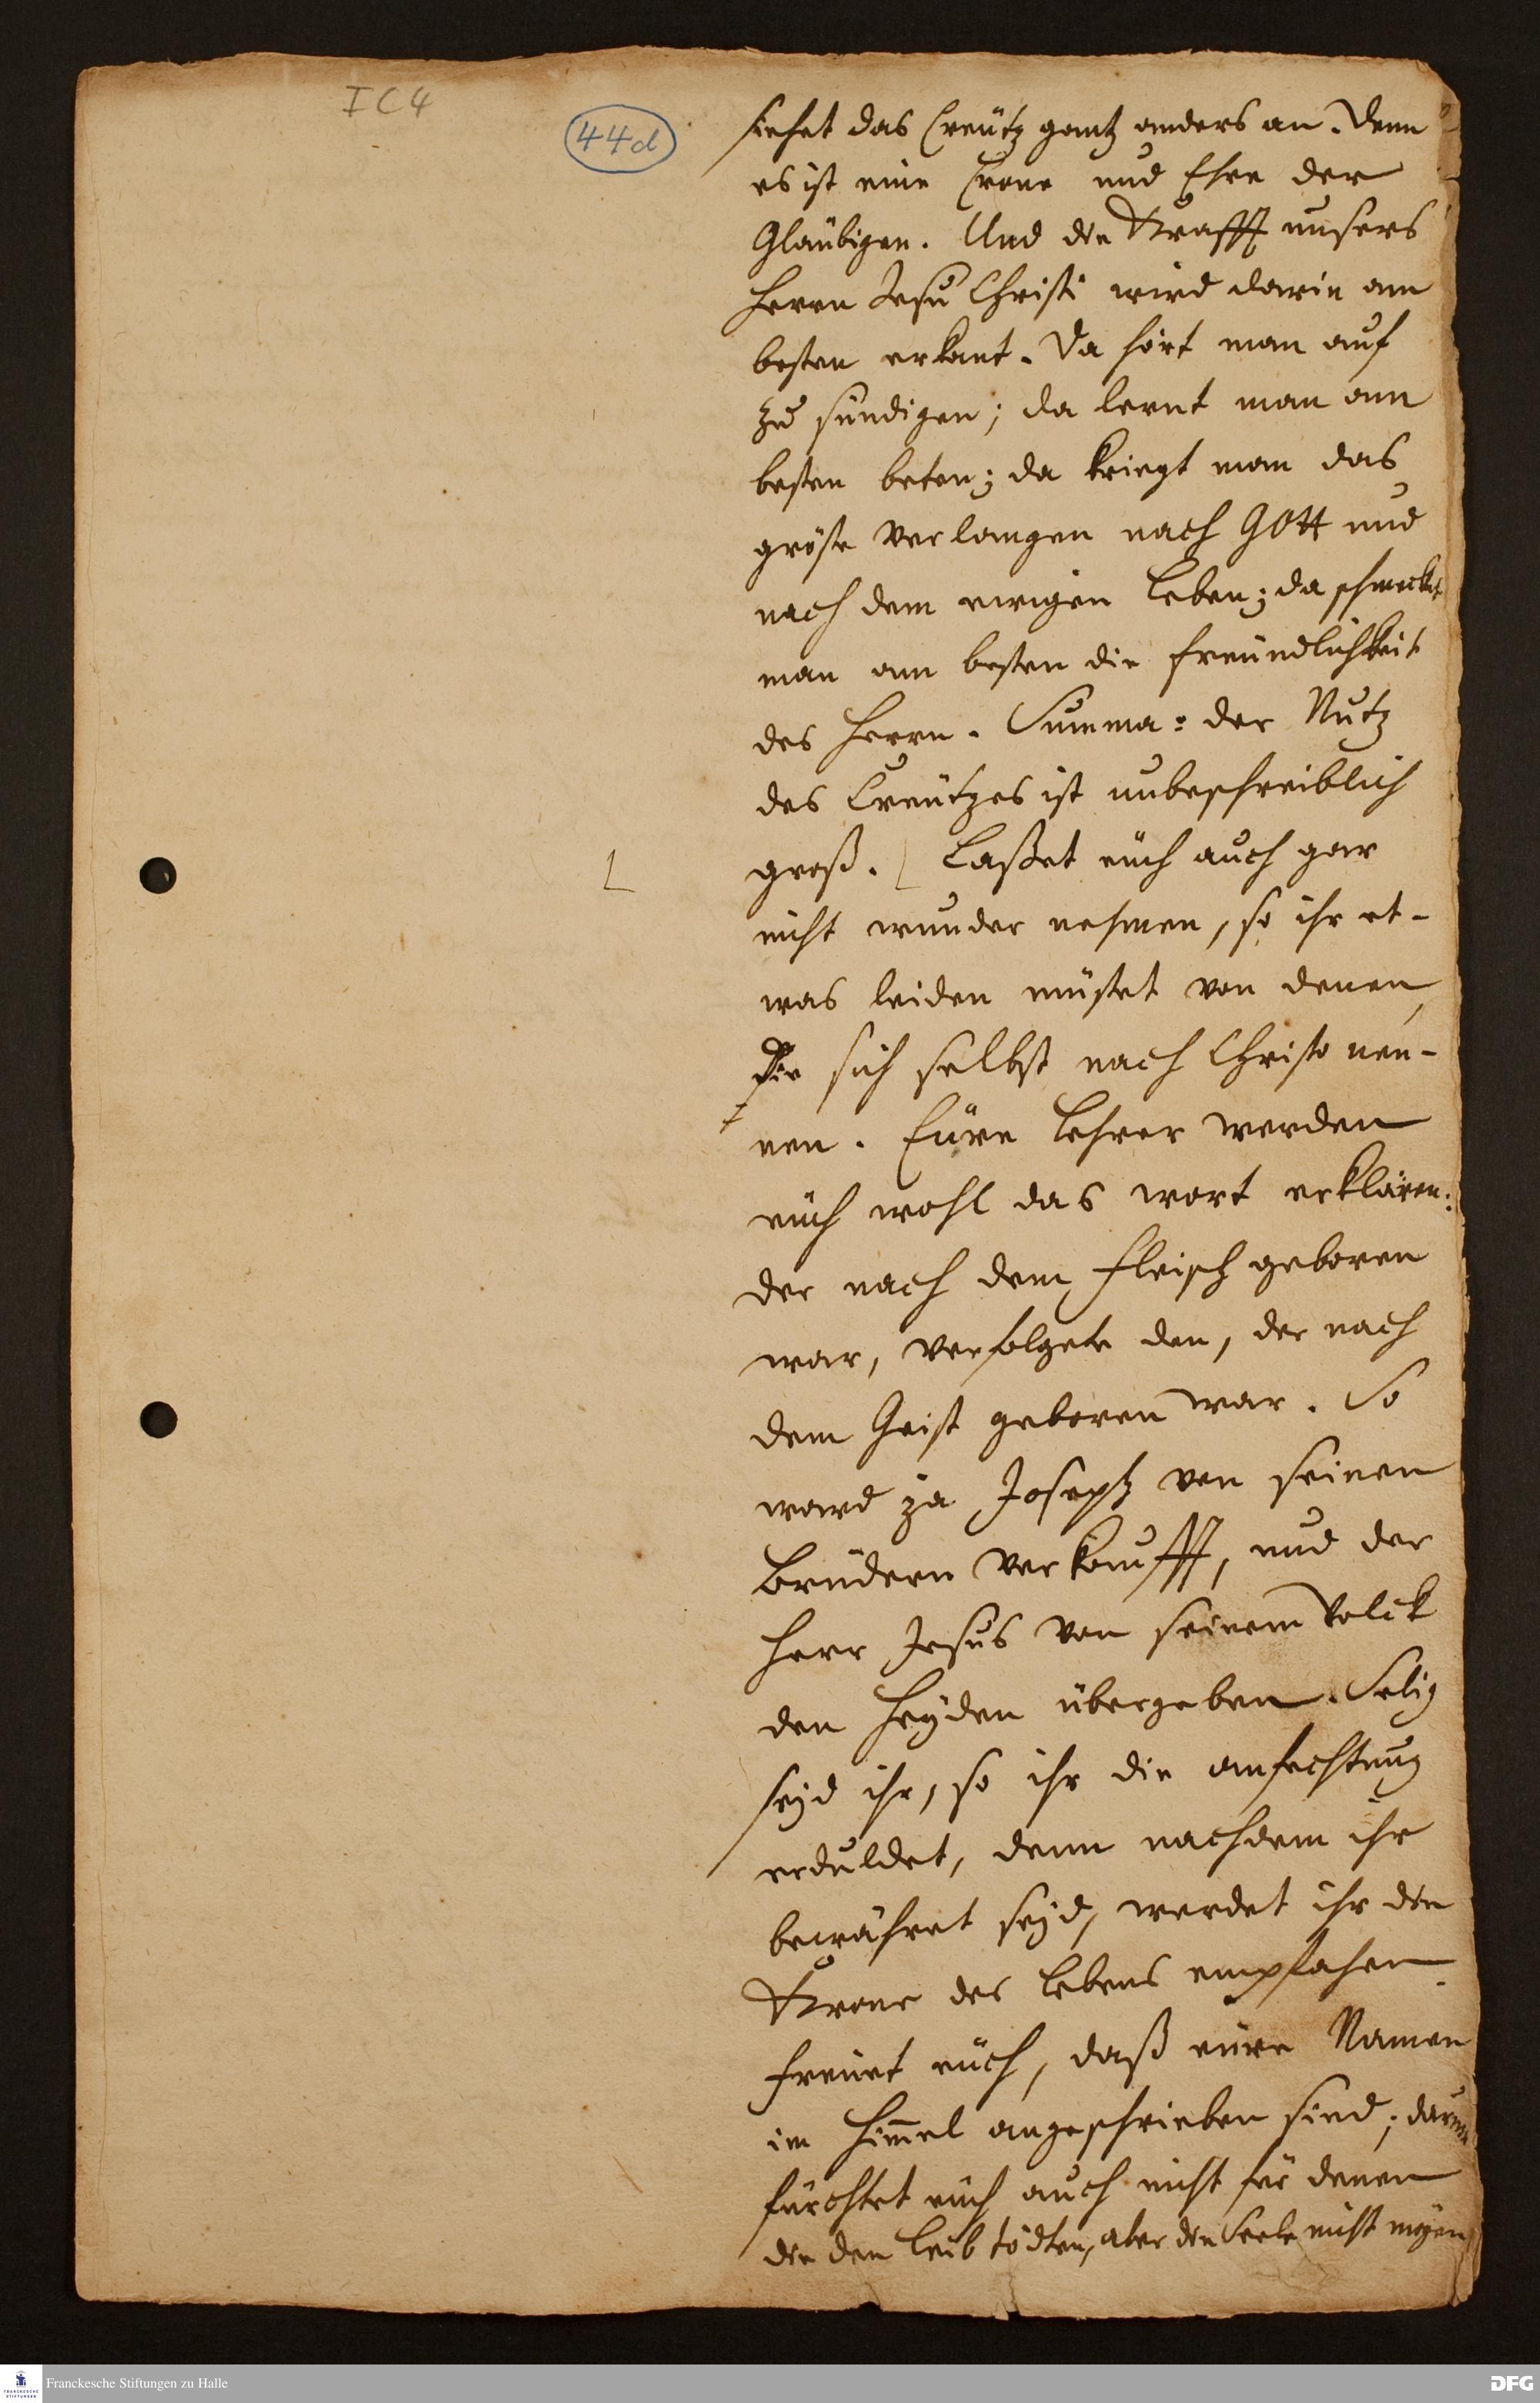 I C 4
44d
siehet das Creütz gantz anders an. Denn
es ist eine Crone und Ehre der
Gläubigen. Und die Krafft unsers
Herrn Jesu Christi wird darin am
besten erkant. Da hört man auf
zu sündigen; da lernt man am
besten beten; da kriegt man das
gröste Verlangen nach GOtt und
nach dem ewigen Leben; da schmecket
man am besten die Freundlichkeit
des Herrn. Summa: der Nutz
des Creützes ist unbeschreiblich
groß. Laßet euch auch gar
nicht wunder nehmen, so ihr et-
was leiden müstet von denen,
die sich selbst nach Christo nen-
nen. Eure Lehrer werden
euch wohl das wort erklären:
der nach dem Fleisch geboren
war, verfolgete den, der nach
dem Geist geboren war. So
ward ja Joseph von seinen
Brüdern verkaufft, und der
Herr Jesus von seinem Volck
den Heyden übergeben. Selig
seyd ihr, so ihr die anfechtung
erduldet, denn nachdem ihr
bewähret seyd, werdet ihr die
Krone des Lebens empfahen.
Freuet euch, daß eure Namen
im Himel angeschrieben sind; darum
fürchtet euch auch nicht für denen
die den Leib tödten, aber die Seele nicht mögen
Franckesche Stiftungen zu Halle
DFG